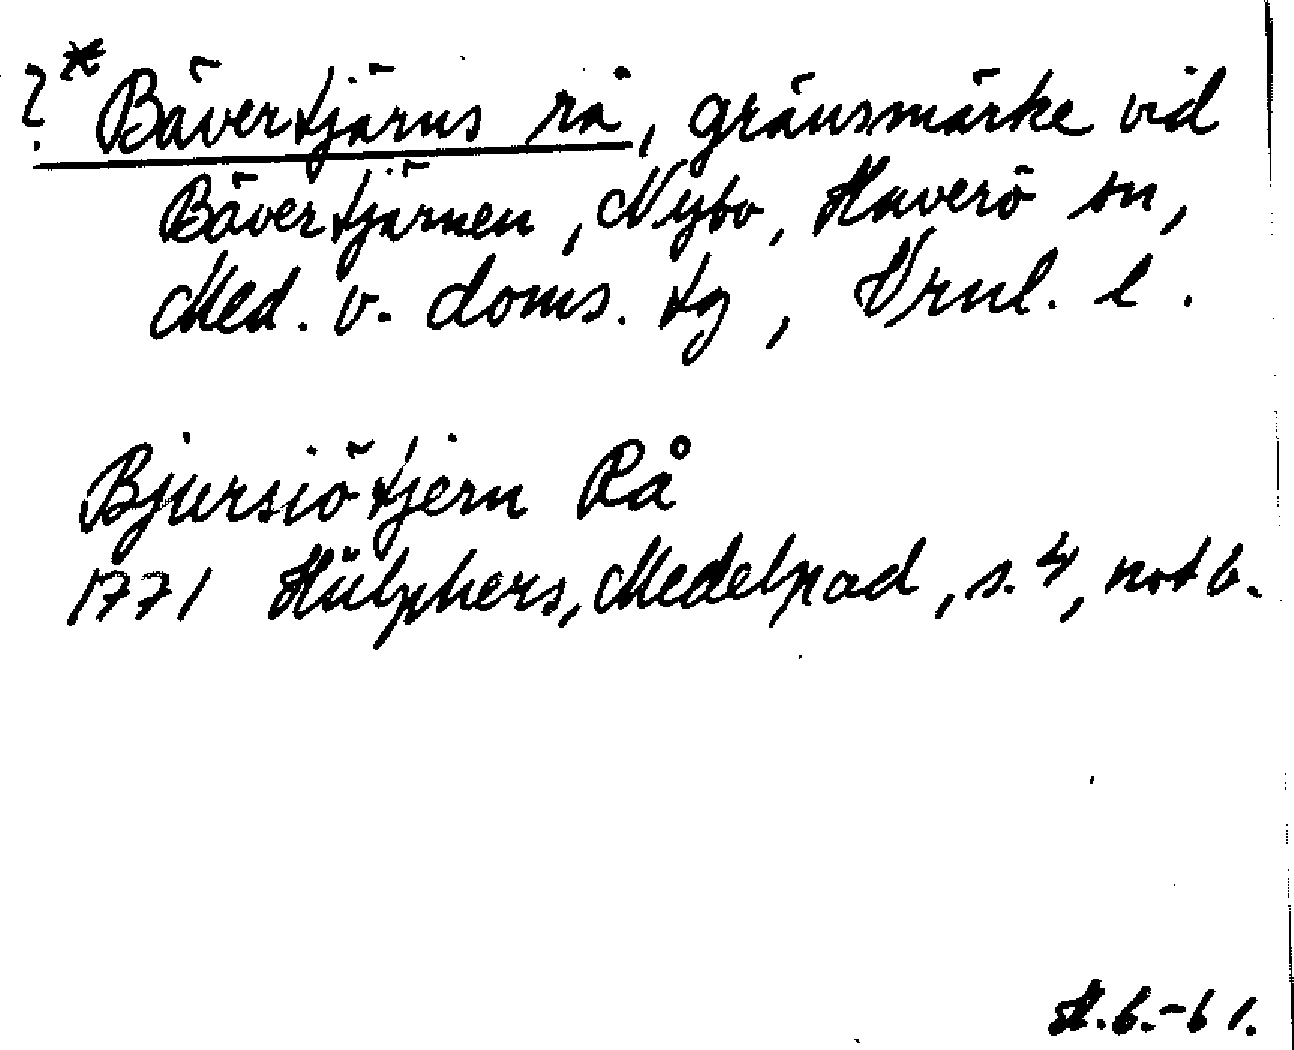 ?* Bävertjärns rå, gränsmärke vid
Bävertjärnen, Nybo, Haverö sn,
Med. v. doms. tg, Vrnl. l.
Bjursiötjern Rå
1771 Hülphers, Medelpad, s. 4, not b.
H.b.-61.